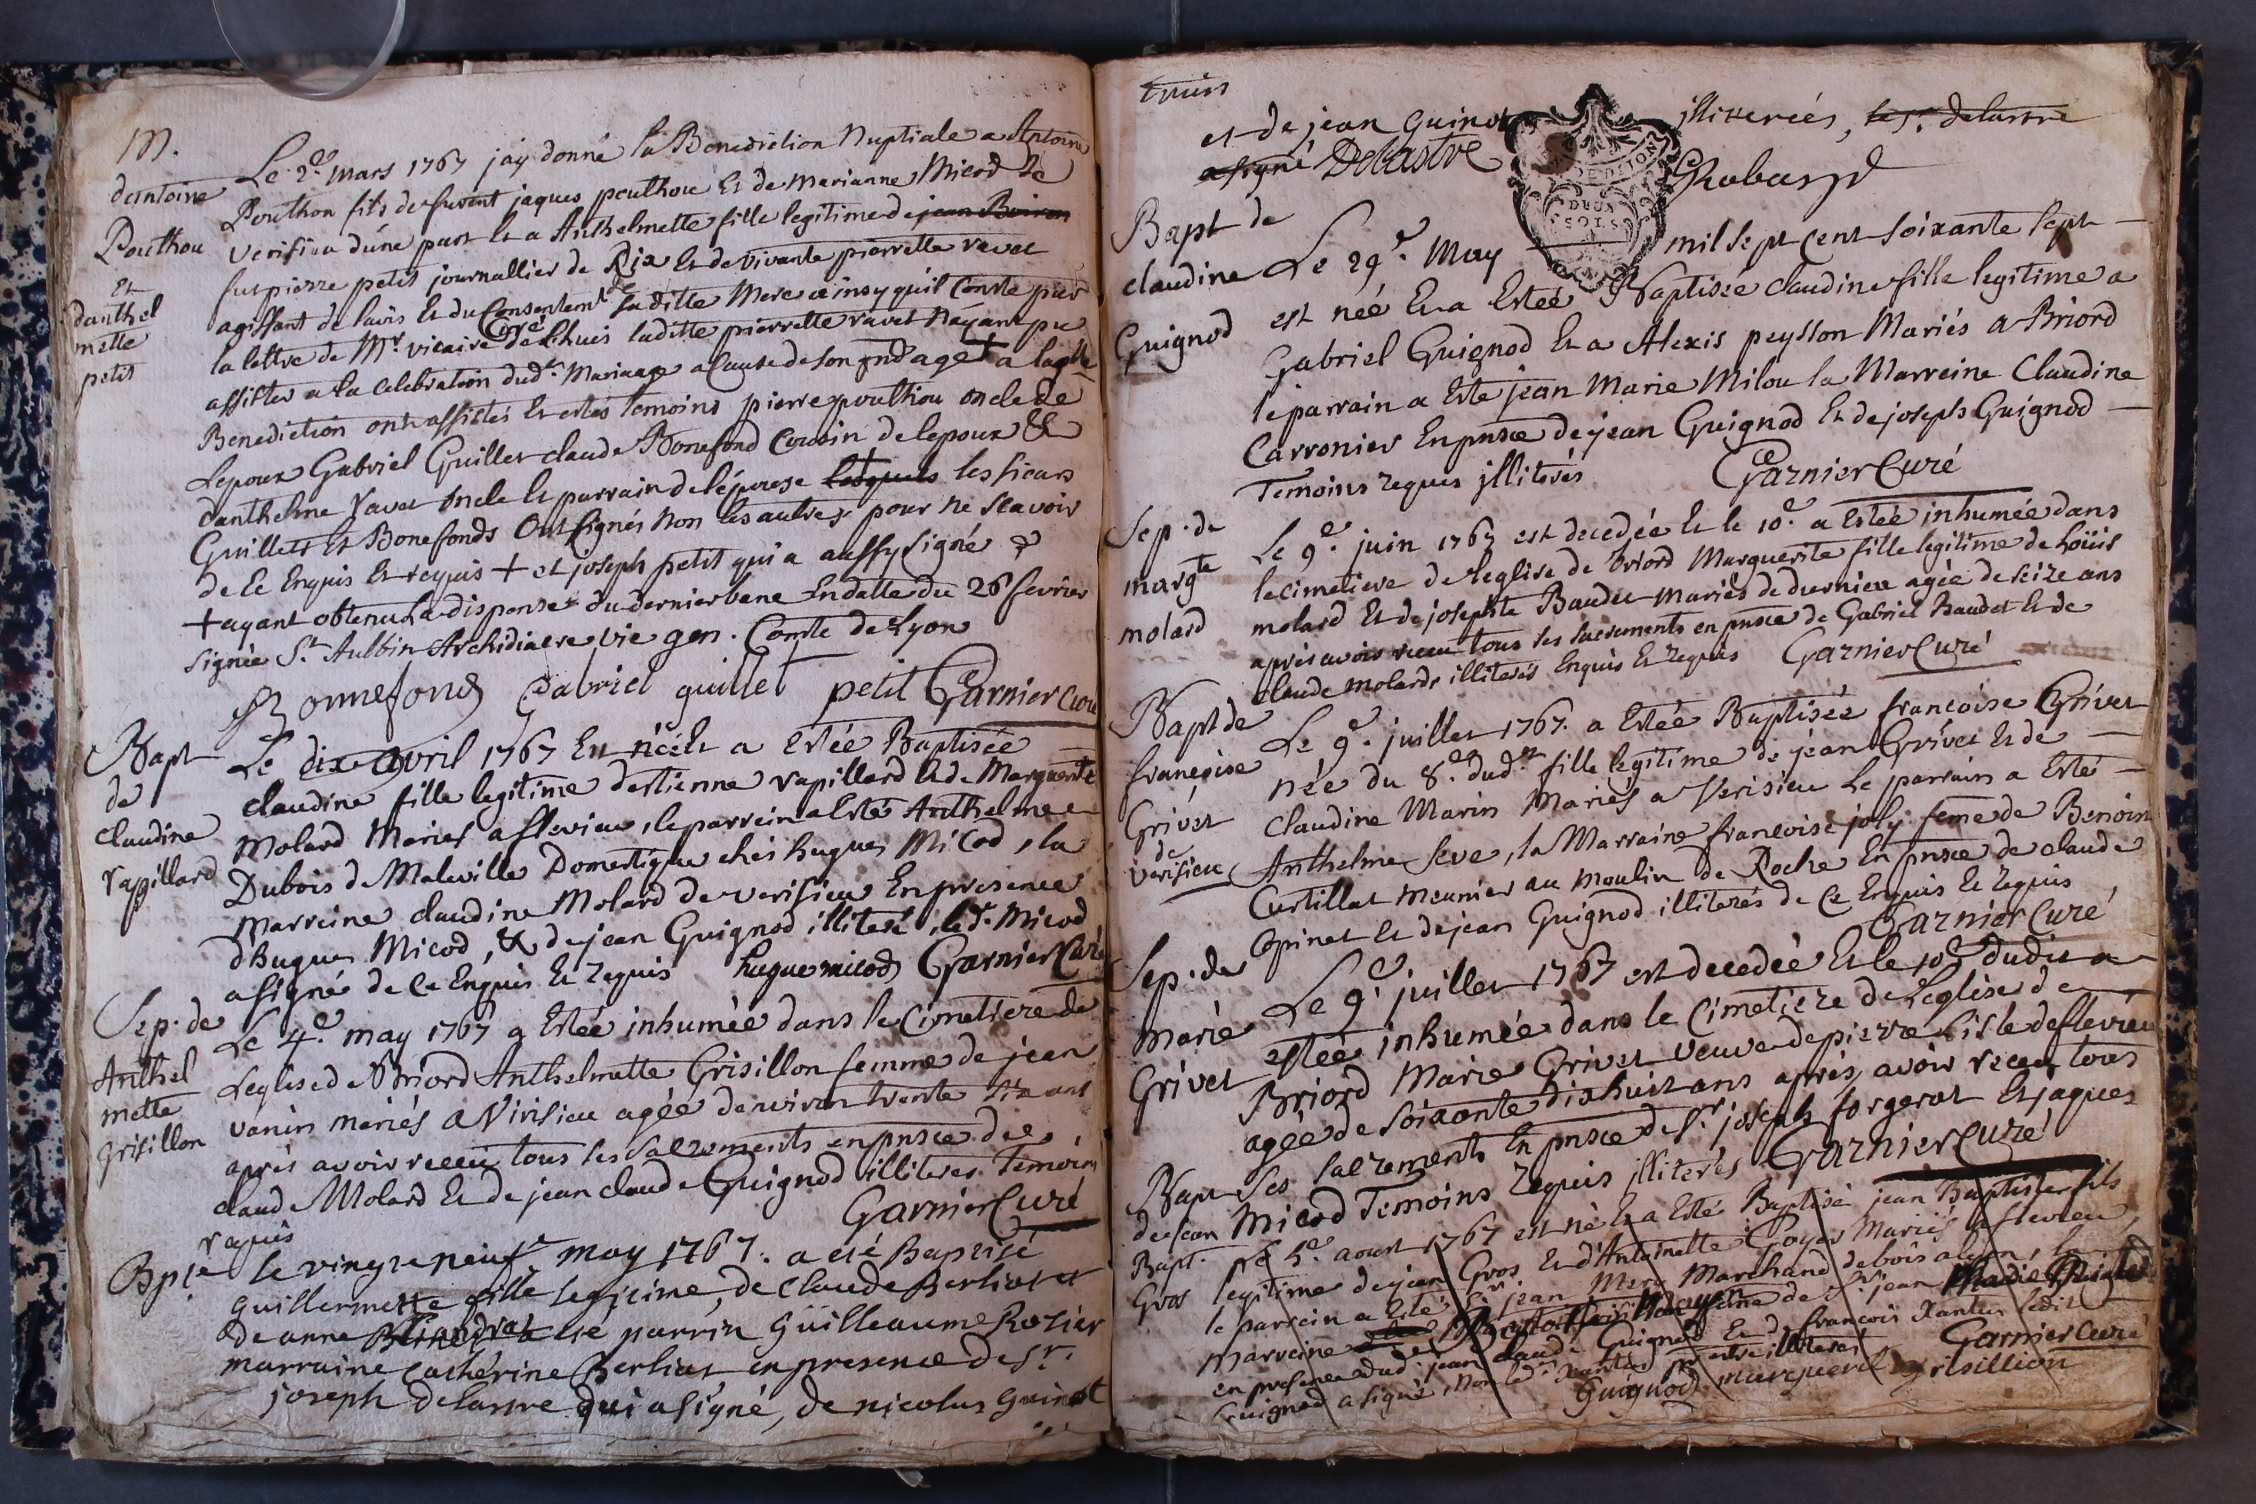 M.
dantoine
Pouthou
Et
danthel
mette
petit
Le 2e. mars 1767 jay donné la Benediction Nuptiale a Antoine
Pouthon fils de fuvent jaques pouthou Et de marianne Micod de
Verisieu d'une part Et a Anthelmette fille legitime de jean Boiron
fut pierre petit journallier de Rix Et de vivante pierrette ravet
agissant de lavis Et du Consentemt de sa ditte Mere ainsy quil Conste par
la lettre de Mr. vicaire Curé de Lhuis laditte pierrette ravet Nayant pu
assister a la Celebration dudt. Mariage a Cause de son gnd age + a laqlle
Benediction ont assistés Et estés temoins pierre pouthou oncle de
Lepoux Gabriel Guillet claude Bonefond Cousin de lepoux &
danthelme ravet oncle Et parrain de lépouse lesquels les sieurs
Guillets Et Bonefonds Ont Signés Non les autres pour ne Scavoir
de Ce Enquis Et requis + et joseph petit qui a aussy Signé &
+ ayant obtenu La dispense du dernier bane En datte du 26 fevrier
Signée St. Aubbin Archidiacre vic gen. Comte de Lyon
Bonnefond Gabriel guillet petit Garnier Curé
Bapt
de
Claudine
rapillard
Le dix avril 1767 Est néeEt a Estée Baptisée
claudine fille legitime destienne rapillard Et de Marguerite
Molard Mariés a flevieu, le parrein a Esté Anthelme
Dubois de Maleville Domestique chés hugues Micod, la
marreine claudine Molard de verisieu En presence
dhugues Micod, & de jean Guignod illiteré, ledt. Micod
a signé de Ce Enquis Et requis hugue micod Garnier Curé
Sep. de
Anthel
mette
grisillon
Le 4e. may 1767 a Estée inhumée dans le Cimetiere de
Leglise de Briord Anthelmette Grisillon femme de jean
vanin mariés a Virisieu agée denviron trente six ans
aprés avoir receu tous les sacrements en pnsce de
claude Molard Et de jean claude Guignod illiteres Temoins
requis Garnier Curé
Bpte
le vingt neufe may 1767. a eté Baptisé
guillermette fille legitime, de Claude Berliat et
de anne eté parrin guilleaume Rosier
marraine Catherine Berliat en presence de Sr.
joseph delastre qui a signé, de nicolas guinet
et de jean Guinet illiterées, le sr. delastre
a signé Delastre Robard
Bapt de
claudine
Guignod
Le 29e. May mil sept Cent soixante sept
est née Et a Esteé Baptisée claudine fille legitime a
Gabriel Guignod Et a Alexis peysson Mariés a Briord
le parrain a Este jean Marie Milou la Marreine Claudine
Carronier En pnsce de jean Guignod Et de joseph Guignod
Temoins requis illiterés Garnier Curé
Sep. de
margte
molard
Le 9e. juin 1767 est decedée Et le 10e. a Estée inhumée dans
le cimetiere de leglise de briord Marguerite fille legitime de Loüis
molard Et de josephte Baudet Mariés de durnieu agée de seize ans
aprés avoir receu tous les sacrements en pnsce de Gabriel Baudet Et de
claude molard, illiterés Enquis Et requis Garnier Curé
Bapt de
francoise
Grivet
de
Verisieu
Le 9e. juillet 1767. a Estée Baptisée francoise Grivet
née du 8e. dudt. fille legitime de jean Grivet Et de
Claudine Marin Mariés a Verisieu Le parrain a Esté
Anthelme Seve, la Marraine francoise joly feme de Benoin
Curtillat Meunier au moulin de Roche En pnsce de claude
Opinet Et de jean Guignod illiterés de Ce Enquis Et requis
Garnier Curé
Sep. de
marie
Grivet
Le 9e. juillet 1767 est decedée Et le 10e dudit a
estée inhumée dans le Cimetiere de Leglise de
Briord Marie Grivet veuve de pierre Lisle de flevieu
agée de soixante dix huit ans aprés avoir receu tous
Ses Sacrements En pnsce de Sr. joseph forgerot Et jaques
Micod Temoins requis illiterés Garnier Curé
Bapt
de jean
Bapt.
Gros
Le 5e. aoust 1767 est né Et a Esté Baptisé jean Baptiste fils
legitime de jean Gros Et d'Antoinette Goyet Mariés a flevieu,
le parrein a Esté Sr. jean Mery Marchand de bois a lyon, la
marreine de Sr. jean
en presence dudt. jean claude Guignod Et de francois Xanter ledit
Guignod a signé, Non ledt. Xanter pr estre illiteré Garnier Curé
Guignod grisillion